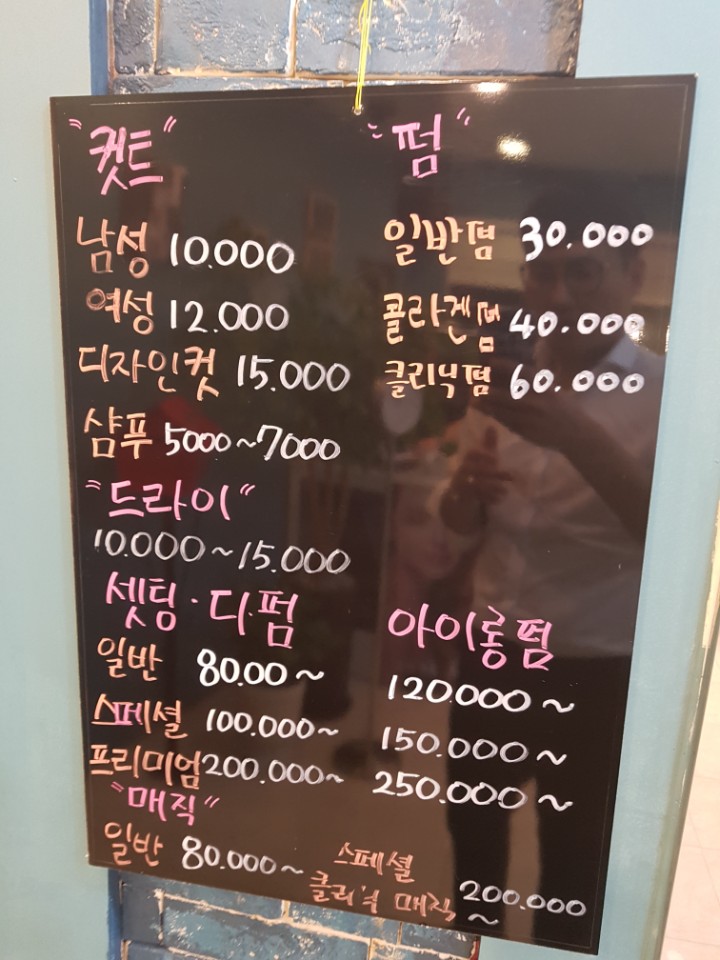 "컷트"
남성 10.000
여성 12.000
디자인컷 15.000
샴푸 5000~7000
"드라이"
10.000~15.000
"펌"
일반펌 30.000
콜라겐펌 40.000
클리닉펌 60.000
셋팅·디펌
일반 80.00~
스페셜 100.000~
프리미엄 200.000~
아이롱펌
120.000~
150.000~
250.000~
"매직"
일반 80.000~
스페셜
클리닉 매직 200.000
~